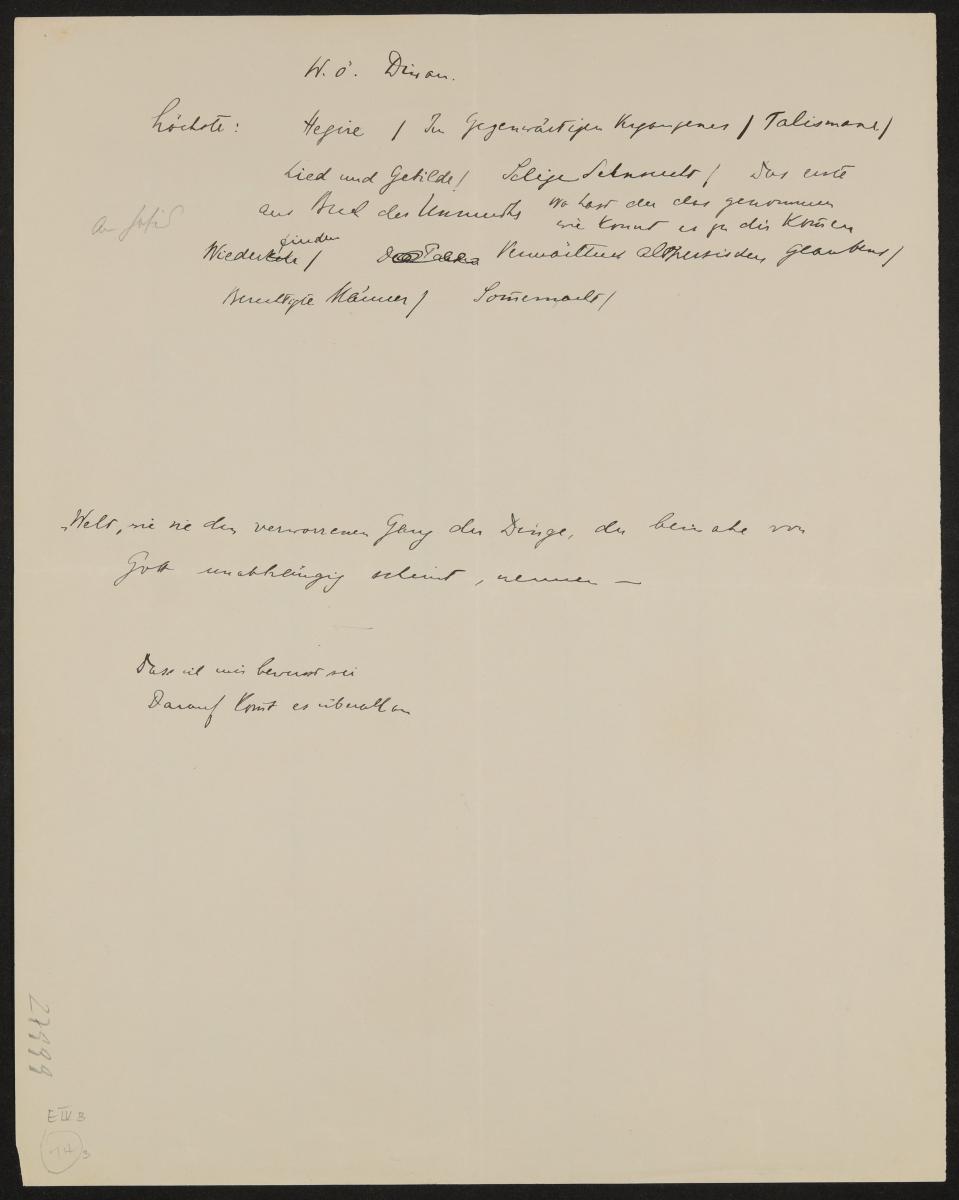 W. ö. Divan.
höchste: Hegire / Im Gegenwärtigen Vergangenes / Talismane /
Lied und Gebilde / Selige Sehnsucht / Das erste
aus Buch des Unmuths Wo hast du das genommen
wie konnt es zu dir kom̅en
An Hafis
Wiederfinden / Vermächtnis altpersischen Glaubens /
Berechtigte Männer / Som̅ernacht /
„Welt, wie sie den verworrenen Gang der Dinge, der beinahe von
Gott unabhängig scheint, nennen —
Dass ich mir bewusst sei
Darauf kom̅t es überall an
27999
E IV B
14 3